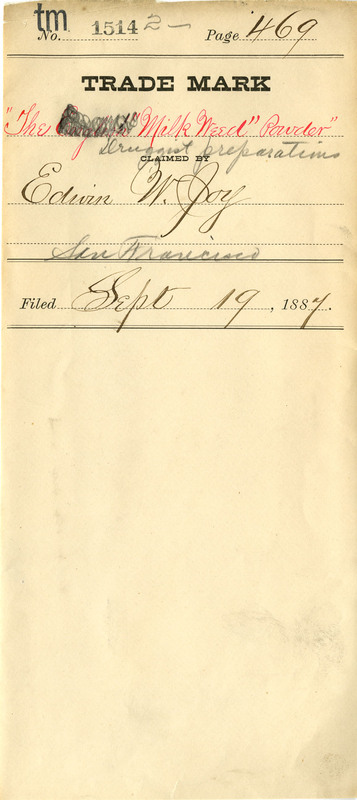 tm
No. 1514 2 — Page 469
TRADE MARK
"The "Milk Weed" Powder"
Druggist preparations
CLAIMED BY
Edwin W. Joy
San Francisco
Filed Sept 19, 1887.